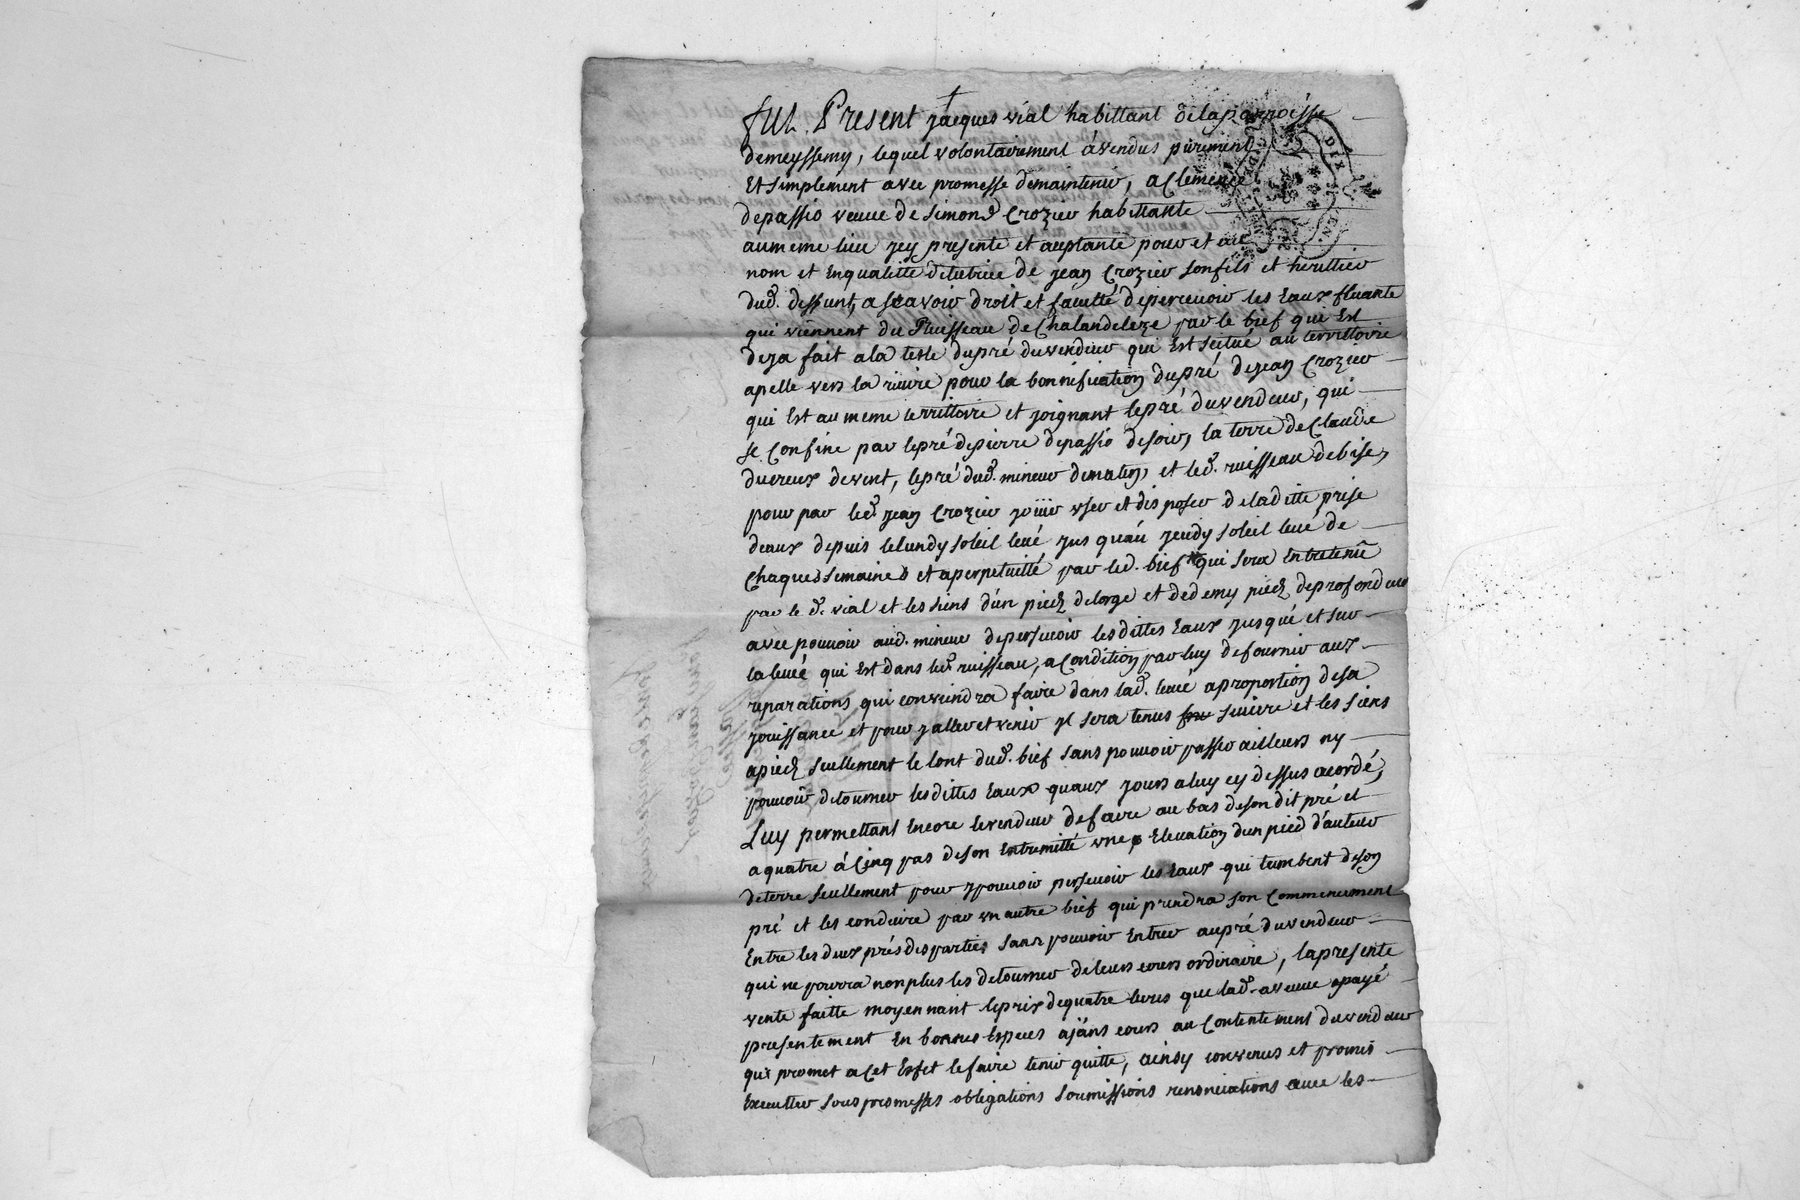 fut Present jacques vial habittant de la parroisse
de meyssemy, lequel volontairement á vendus purement
Et simplement avec promesse de maintenir, a Clemence
depassio veuve de Simond Crozier habittante
au meme lieu icy presente et aceptante pour et au
nom et En qualitté de tutrice de jean Crozier son fils et herittier
dud. deffunt, a scavoir droit et faculté de percevoir les Eaux fluante
qui viennent du Ruisseau de Chalandeleze par le bief que Est
deja fait a la teste du pré du vendeur qui Est scitué au territtoire
apelle vers la riviere pour la bonnification du pré de jean Crozier
qui Est au meme territtoire et joignant le pré du vendeur, qui
se Confine par le pré de pierre depassio de soir, la terre de Claude
duvreux de vent, le pré dud. mineur de matin, et led. ruisseau de bise,
pour par led. jean Crozier jouir user et disposer de la ditte prise
deaux depuis le lundy soleil levé jus qu'au jeudy soleil levé de
Chaques semaines et a perpetuitté par led. bief qui sera Entretenu
par le d. vial et les siens d'un piedz de large et de demy piedz de profondeur
avec pouvoir aud. mineur de persevoir les dittes Eaux jusqué et sur
la levéé qui Est dans led. ruisseau, a Condition par luy de fournir aux
reparations qui conviendra faire dans lad. levéé a proportion de sa
jouissance et pour y aller et venir il sera tenus suivre et les siens
a piedz seullement le lont dud. bief sans pouvoir passer ailleurs ny
pouvoir detourner les dittes Eaux quaux jours a luy cy dessus acordé,
Luy permettant Encore le vendeur de faire au bas de son dit pré et
a quatre á Cinq pas de son Extremitté une Elevation d'un pied d'auteur
de terre seullement pour y pouvoir persevoir les Eaux qui tumbent de son
pré et les conduire par un autre bief qui prendra son Commencement
Entre les deux prés des parties sans pouvoir Entrer au pré du vendeur
qui ne pourra non plus les detourner de leurs cours ordinaire, la presente
vente faitte moyennant le prix de quatre livres que lad. veuve a payé
presentement En bonnes Especes ajans cours au Contentement du vendeur
qui promet a Cet Effet le faire tenir quitte, ainsy convenus et promis
Executter sous promesses obligations soumissions renonciations avec les